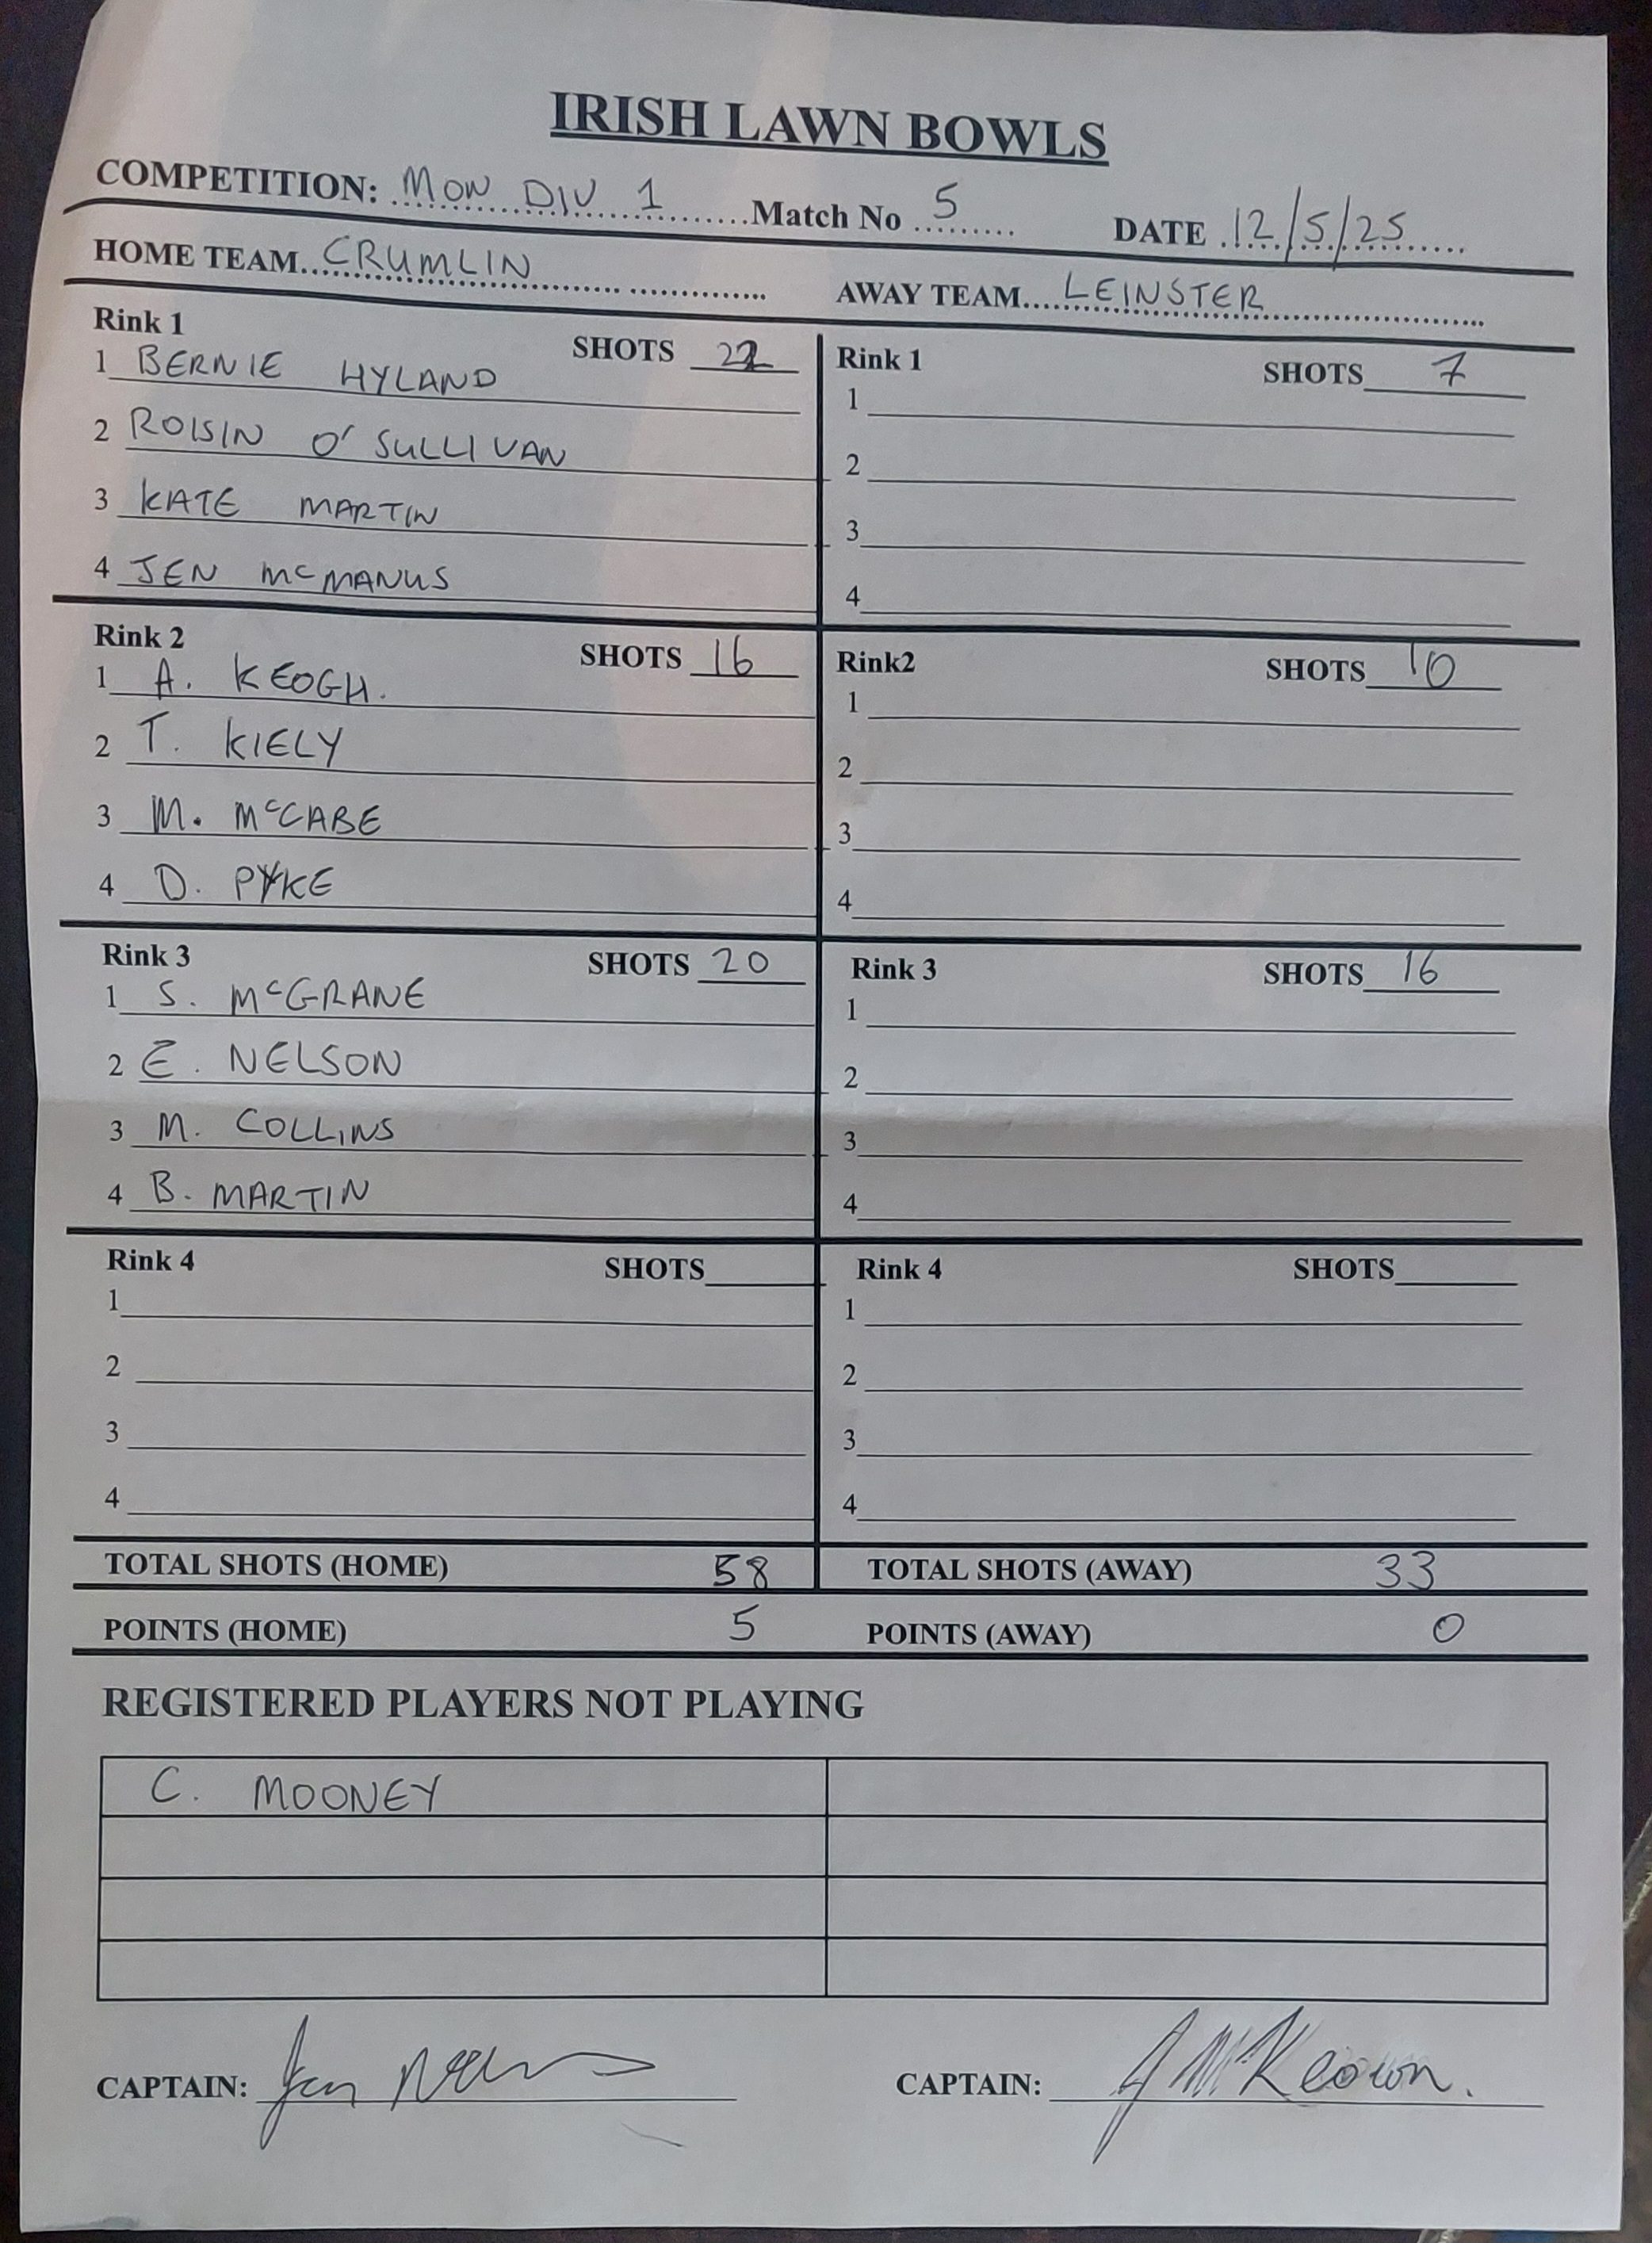 IRISH LAWN BOWLS
COMPETITION: MON DIV 1 Match No 5 DATE 12/5/25
HOME TEAM CRUMLIN AWAY TEAM LEINSTER
Rink 1 SHOTS 22
1 BERNIE HYLAND
2 ROISIN O'SULLIVAN
3 KATE MARTIN
4 JEN McMANUS
Rink 1 SHOTS 7
1
2
3
4
Rink 2 SHOTS 16
1 A. KEOGH.
2 T. KIELY
3 M. McCABE
4 D. PYKE
Rink2 SHOTS 10
1
2
3
4
Rink 3 SHOTS 20
1 S. McGRANE
2 E. NELSON
3 M. COLLINS
4 B. MARTIN
Rink 3 SHOTS 16
1
2
3
4
Rink 4 SHOTS
1
2
3
4
Rink 4 SHOTS
1
2
3
4
TOTAL SHOTS (HOME) 58 TOTAL SHOTS (AWAY) 33
POINTS (HOME) 5 POINTS (AWAY) 0
REGISTERED PLAYERS NOT PLAYING
C. MOONEY
CAPTAIN: Jen CAPTAIN: J McKeown.